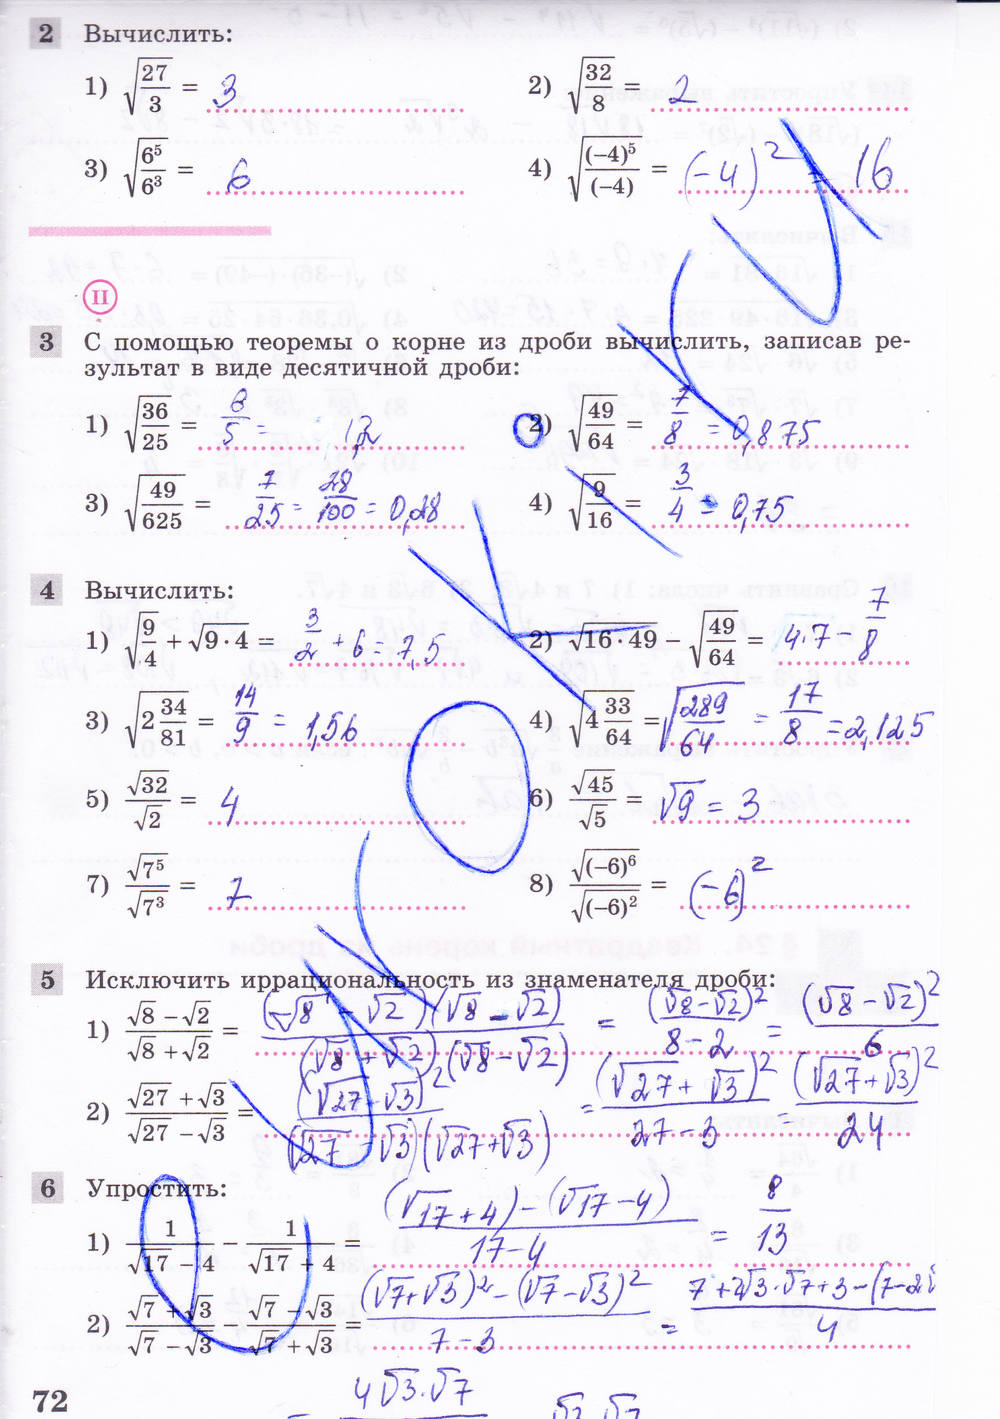 2 Вычислить:
1) √(27/3) = 3
2) √(32/8) = 2
3) √(6⁵/6³) = 6
4) √((−4)⁵/(−4)) = (−4)² = 16
II
3 С помощью теоремы о корне из дроби вычислить, записав ре-
зультат в виде десятичной дроби:
1) √(36/25) = 6/5 = 1,2
2) √(49/64) = 7/8 = 0,875
3) √(49/625) = 7/25 = 28/100 = 0,28
4) √(9/16) = 3/4 = 0,75
4 Вычислить:
1) √(9/4) + √(9·4) = 3/2 + 6 = 7,5
2) √(16·49) − √(49/64) = 4·7 − 7/8
3) √(2 34/81) = 14/9 = 1,56
4) √(4 33/64) = √(289/64) = 17/8 = 2,125
5) √32/√2 = 4
6) √45/√5 = √9 = 3
7) √7⁵/√7³ = 7
8) √(−6)⁶/√(−6)² = (−6)²
5 Исключить иррациональность из знаменателя дроби:
1) (√8 − √2)/(√8 + √2) = (√8 − √2)(√8 − √2)/(√8 + √2)(√8 − √2) = (√8 − √2)²/(8 − 2) = (√8 − √2)²/6
2) (√27 + √3)/(√27 − √3) = (√27 + √3)²/(√27 − √3)(√27 + √3) = (√27 + √3)²/(27 − 3) (√27 + √3)²/24
6 Упростить:
1) 1/(√17 − 4) − 1/(√17 + 4) = ((√17 + 4) − (√17 − 4))/(17 − 4) = 8/13
2) (√7 + √3)/(√7 − √3) − (√7 − √3)/(√7 + √3) = ((√7 + √3)² − (√7 − √3)²)/(7 − 3) = (7 + 2√3·√7 + 3 − (7 − 2√)/4
72
4√3·√7